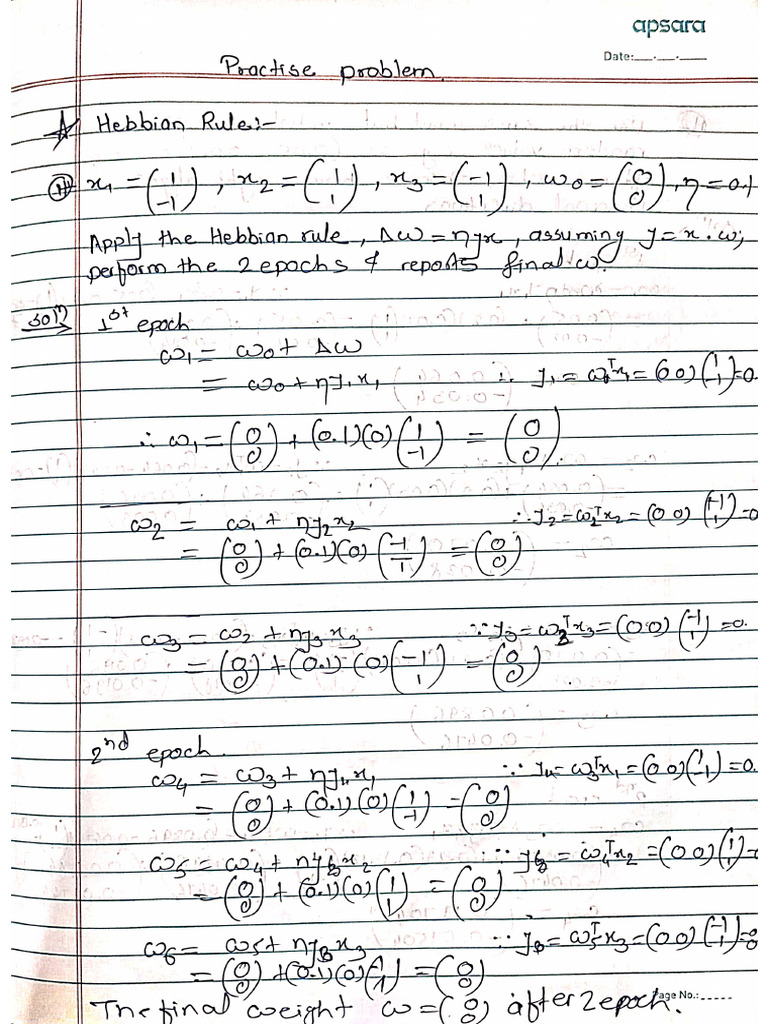 apsara
Date:__.__.__
Practise problem.
☆ Hebbian Rule:-
① x₁ = (1 -1), x₂ = (1 1), x₃ = (-1 1), w₀ = (0 0), η = 0.1
Apply the Hebbian rule, Δw = ηyx, assuming y = x.w;
perform the 2 epochs & reports final w.
Solⁿ) 1st epoch
w₁ = w₀ + Δw
= w₀ + ηy₁x₁ ∵ y₁ = w₀ᵀx₁ = (0 0)(1 -1) = 0.
∴ w₁ = (0 0) + (0.1)(0)(1 -1) = (0 0)
w₂ = w₁ + ηy₂x₂ ∵ y₂ = w₂ᵀx₂ = (0 0)(-1 1) = 0
= (0 0) + (0.1)(0)(-1 1) = (0 0)
w₃ = w₂ + ηy₃x₃ ∵ y₃ = w₂ᵀx₃ = (0 0)(-1 1) = 0.
= (0 0) + (0.1)(0)(-1 1) = (0 0)
2nd epoch.
w₄ = w₃ + ηy₄x₁ ∵ y₄ = w₃ᵀx₁ = (0 0)(1 -1) = 0.
= (0 0) + (0.1)(0)(1 -1) = (0 0)
w₅ = w₄ + ηy₅x₂ ∵ y₅ = w₄ᵀx₂ = (0 0)(1 1) =
= (0 0) + (0.1)(0)(1 1) = (0 0)
w₆ = w₅ + ηy₆x₃ ∵ y₆ = w₅ᵀx₃ = (0 0)(-1 1) = 0
= (0 0) + (0.1)(0)(-1 1) = (0 0)
The final weight w = (0 0) after 2 epoch.
Page No.: